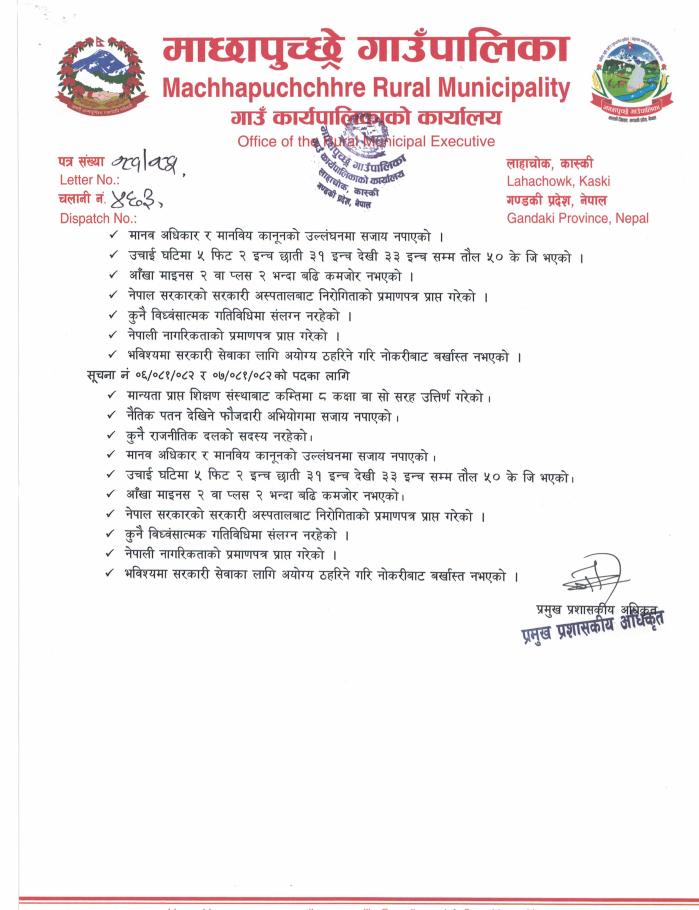 माछापुच्छ्रे गाउँपालिका
Machhapuchchhre Rural Municipality
गाउँ कार्यपालिकाको कार्यालय
Office of the Rural Municipal Executive
पत्र संख्या ०८१/०८२,
Letter No.:
चलानी नं. ४६३,
Dispatch No.:
लाहाचोक, कास्की
Lahachowk, Kaski
गण्डकी प्रदेश, नेपाल
Gandaki Province, Nepal
माछापुच्छ्रे गाउँपालिका
गाउँ कार्यपालिकाको कार्यालय
लाहाचोक, कास्की
गण्डकी प्रदेश, नेपाल
✓ मानव अधिकार र मानविय कानूनको उल्लंघनमा सजाय नपाएको ।
✓ उचाई घटिमा ५ फिट २ इन्च छाती ३१ इन्च देखी ३३ इन्च सम्म तौल ५० के जि भएको ।
✓ आँखा माइनस २ वा प्लस २ भन्दा बढि कमजोर नभएको ।
✓ नेपाल सरकारको सरकारी अस्पतालबाट निरोगिताको प्रमाणपत्र प्राप्त गरेको ।
✓ कुनै विध्वंसात्मक गतिविधिमा संलग्न नरहेको ।
✓ नेपाली नागरिकताको प्रमाणपत्र प्राप्त गरेको ।
✓ भविश्यमा सरकारी सेवाका लागि अयोग्य ठहरिने गरि नोकरीबाट बर्खास्त नभएको ।
सूचना नं ०६/०८१/०८२ र ०७/०८१/०८२को पदका लागि
✓ मान्यता प्राप्त शिक्षण संस्थाबाट कम्तिमा ८ कक्षा वा सो सरह उत्तिर्ण गरेको ।
✓ नैतिक पतन देखिने फौजदारी अभियोगमा सजाय नपाएको ।
✓ कुनै राजनीतिक दलको सदस्य नरहेको।
✓ मानव अधिकार र मानविय कानूनको उल्लंघनमा सजाय नपाएको ।
✓ उचाई घटिमा ५ फिट २ इन्च छाती ३१ इन्च देखी ३३ इन्च सम्म तौल ५० के जि भएको।
✓ आँखा माइनस २ वा प्लस २ भन्दा बढि कमजोर नभएको।
✓ नेपाल सरकारको सरकारी अस्पतालबाट निरोगिताको प्रमाणपत्र प्राप्त गरेको ।
✓ कुनै विध्वंसात्मक गतिविधिमा संलग्न नरहेको ।
✓ नेपाली नागरिकताको प्रमाणपत्र प्राप्त गरेको ।
✓ भविश्यमा सरकारी सेवाका लागि अयोग्य ठहरिने गरि नोकरीबाट बर्खास्त नभएको ।
प्रमुख प्रशासकीय अधिकृत
प्रमुख प्रशासकीय अधिकृत